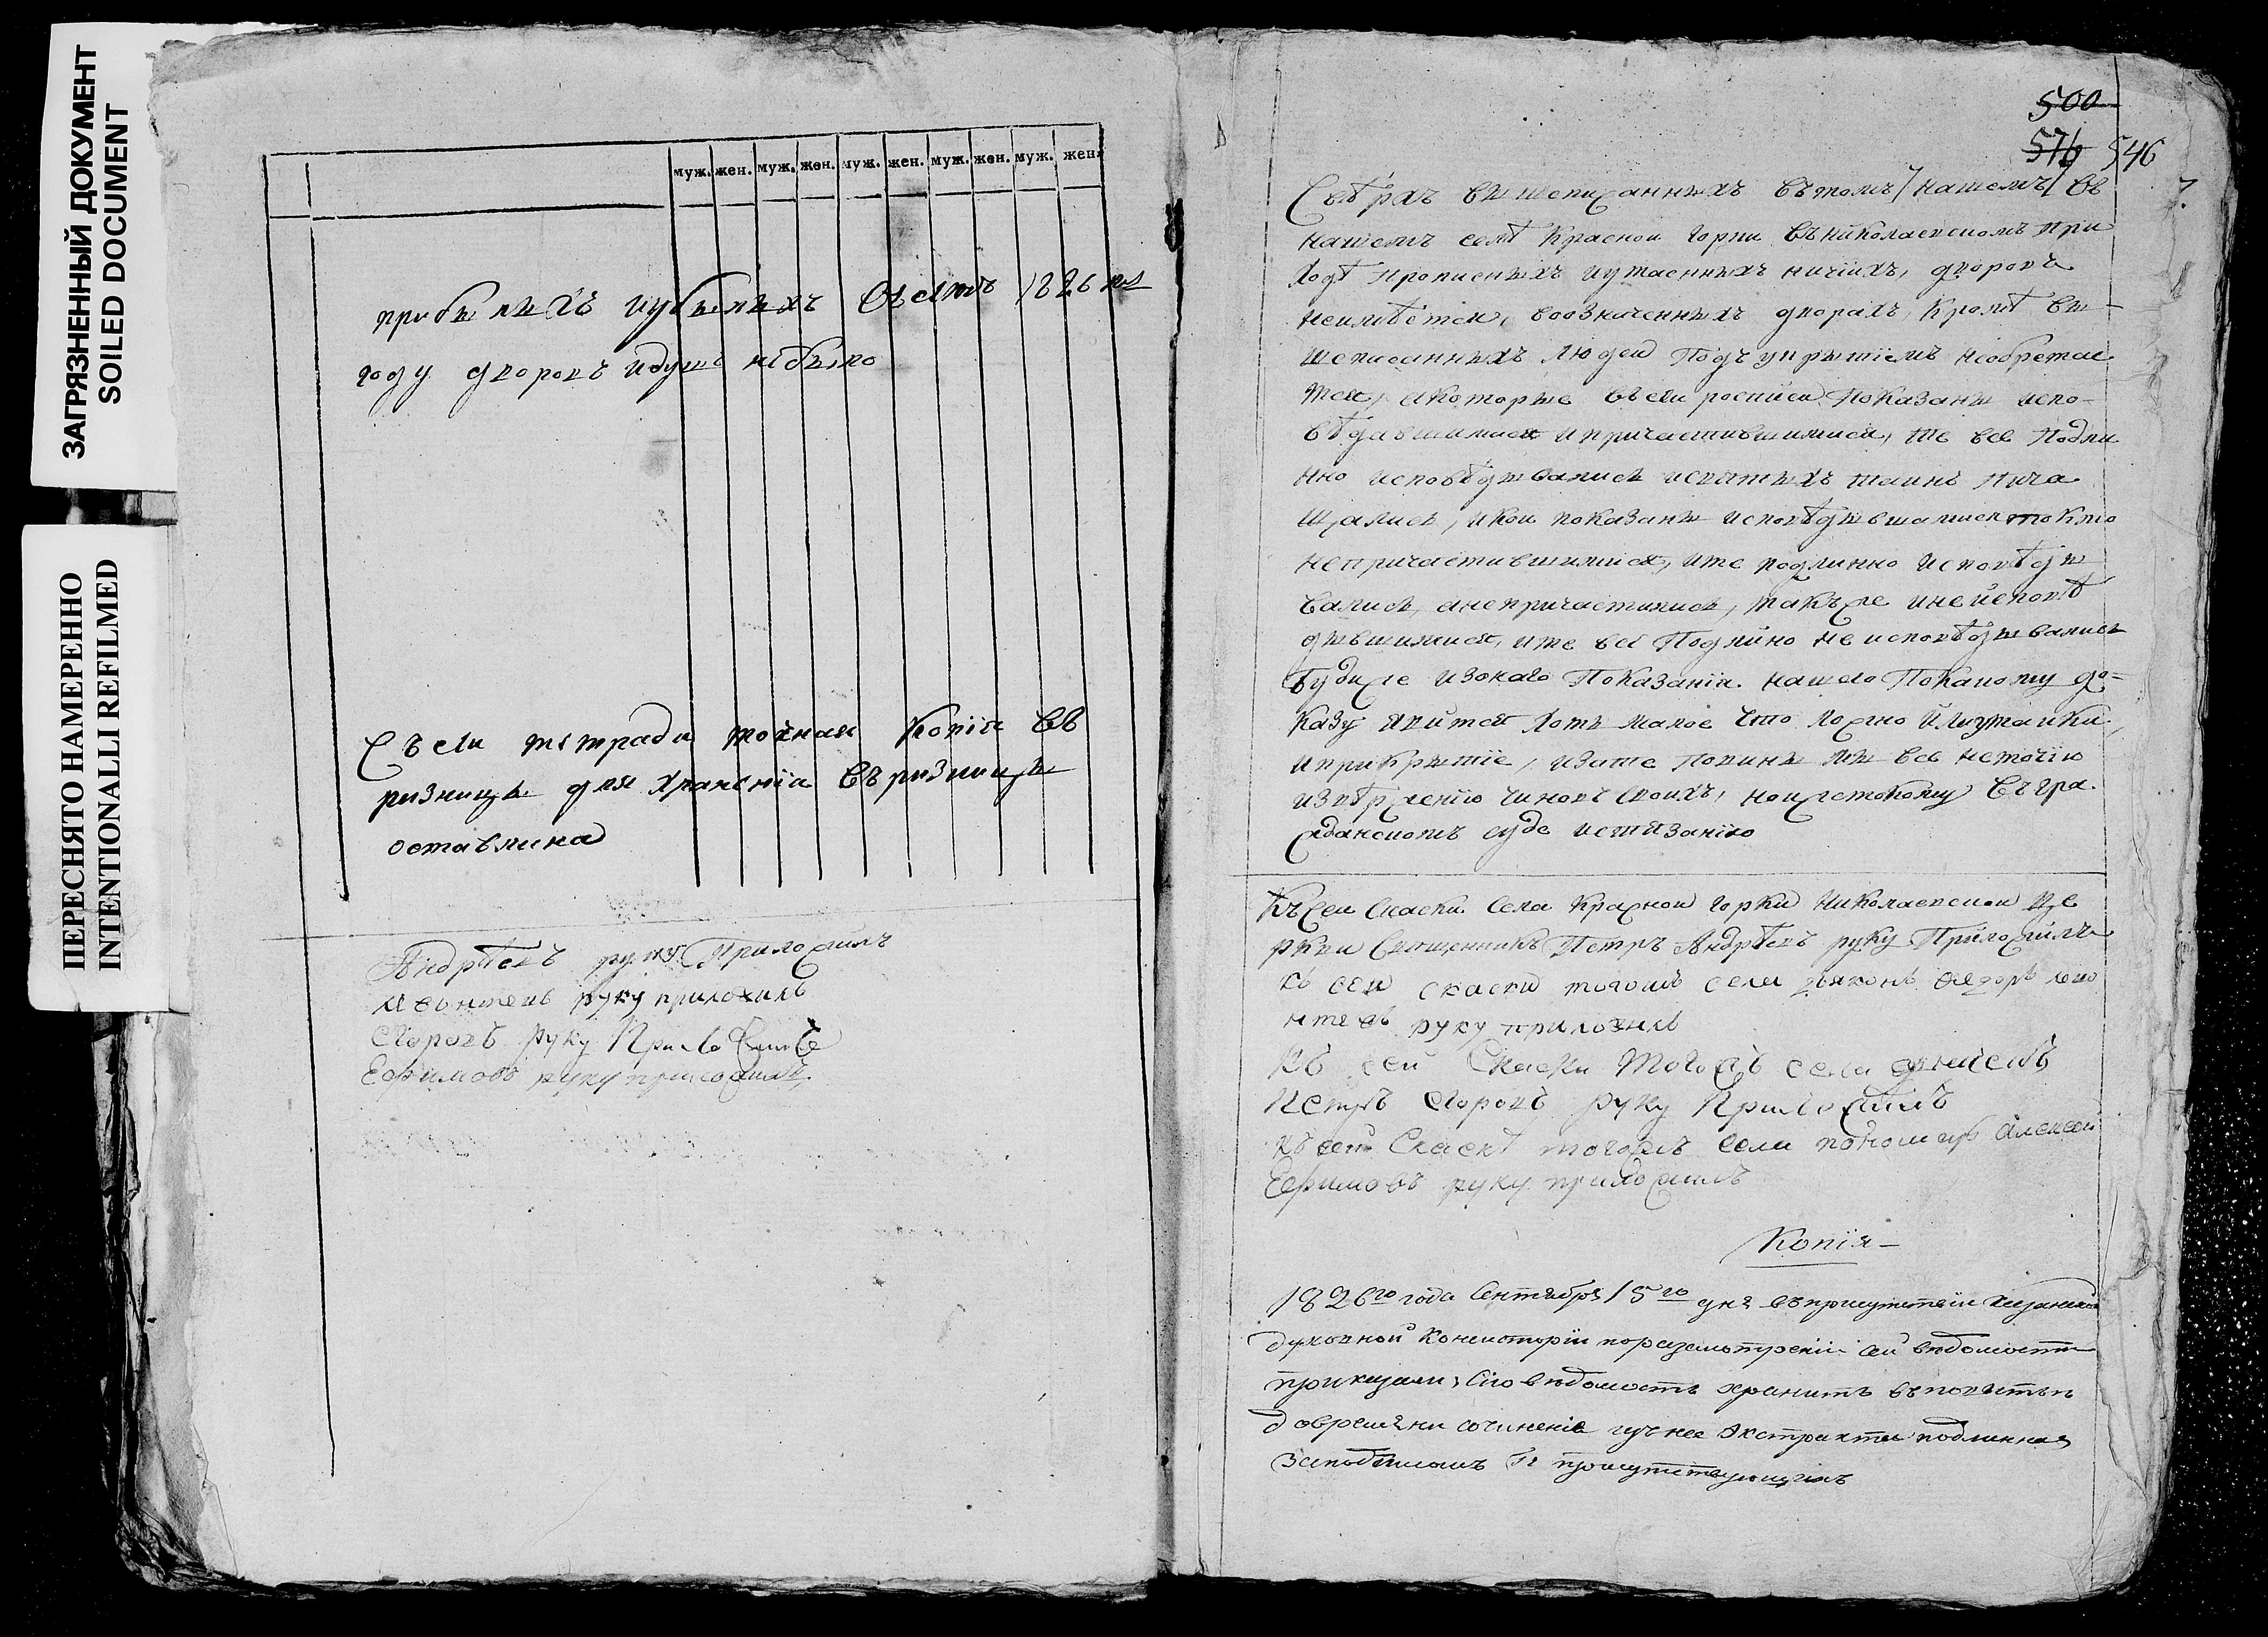 ЗАГРЯЗНЕННЫЙ ДОКУМЕНТ
SOILED DOCUMENT
ПЕРЕСНЯТО НАМЕРЕННО
INTENTIONALLI REFILMED
муж. жен. муж. жен. муж. жен. муж. жен. муж. жен.
прибылыхъ иубылыхъ Въсемъ 1826 мъ
году дворовъ идушъ небыло
Съсеи тетради точная Копія въ
ризницы для храненія въризницы
оставлина
Андрѣевъ руку Приложилъ
леонтевъ руку приложилъ
егоровъ руку Приложилъ
Ефимовъ руку приложилъ
500
576 546
7.
вышеписанныхъ въ томъ нашемъ въ
нашемъ селѣ Красной горки въ николаевскомъ при
ходѣ прописныхъ иутаенныхъ ничіихъ, дворовъ
неимѣется, воозначенныхъ дворахъ, Кромѣ вы-
шеписанныхъ людей Подъ укрытіемъ необретае
тся, акоторые въсеи росписи Показаны испо-
вѣдавшимися ипричастившимися, те все Подли
нно исповѣдывались исвятыхъ таинъ прича
щались, икои показаны исповѣдывшамися токмо
непричастившимися, ите подлинно исповѣды
вались, анепричастились, такъже инеисповѣ
дывшимися, ите всѣ Подлино не исповѣдывались
будиже изонаго Показанія нашего Покакому до-
казу явится хоть малое что ложно илиутайки,
иприкрытіе, изато повины мы все неточію
изверженію чиновъ своихъ, ноижестокому въгра
жданскомъ суде истязанію
Къ сеи скаски Села Красной горки Николаевской це
ркви Священникъ Петръ Андрѣевъ руку Приложилъ
къ сеи скаски тогожъ села дьяконъ федоръ лео
нтевъ руку приложилъ
Къ сеи Скаски тогожъ села дьячекъ
Петръ егоровъ руку Приложилъ
къ сеи Скаскѣ тогожъ села пономарь алексей
Ефимовъ руку приложилъ
Копія
1826го года Сентября 15го дня въприсутствіи казанской
духовной Консисторіи поразсмотреніи сей вѣдомости
приказали: Сію вѣдомость хранить въповытьѣ
довремяни сочиненія изънее экстракта подлинная
заподписомъ Гг присутствующихъ